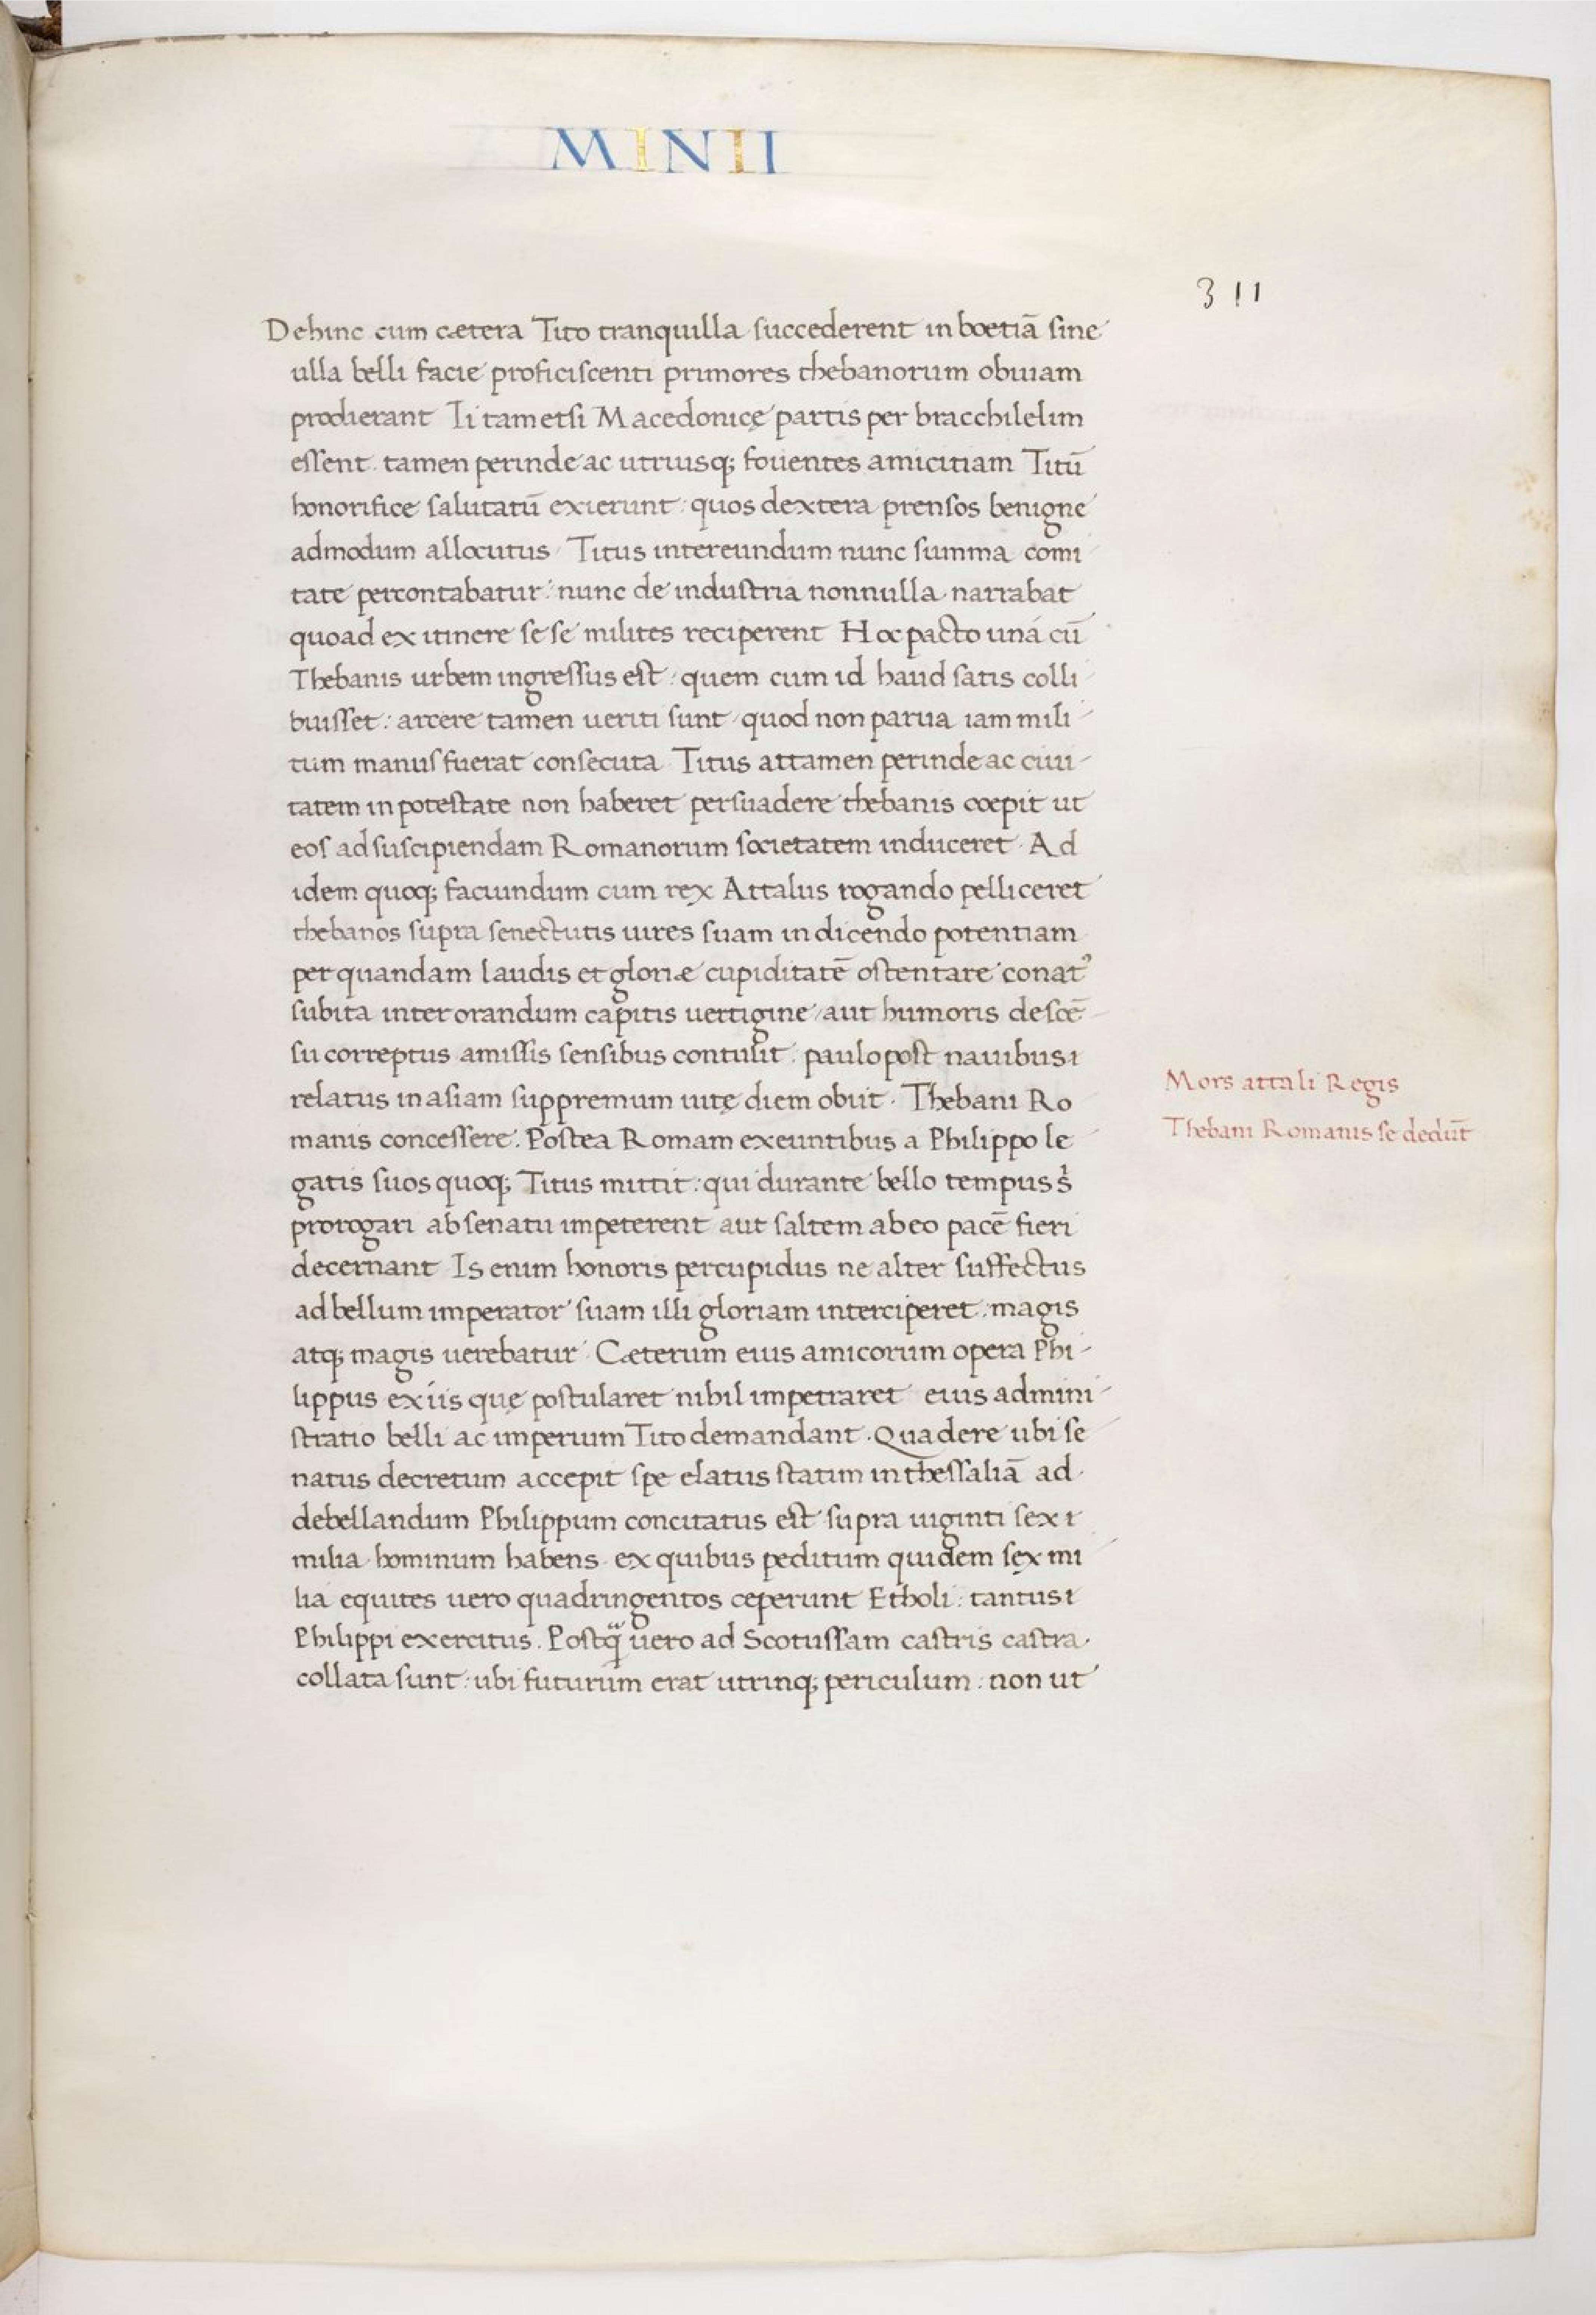 MINII
311
Dehinc cum cætera Tito tranquilla succederent in boetiā sine
ulla belli facie proficiscenti primores thebanorum obuiam
prodierant Ii tametsi Macedonicę partis per bracchilelim
essent. tamen perinde ac utriusq; fouentes amicitiam Titū
honorifice salutatū exierunt: quos dextera prensos benigne
admodum allocutus Titus intereundum nunc summa comi-
tate percontabatur: nunc de industria nonnulla narrabat
quoad ex itinere sese milites reciperent Hoc pacto uná cū
Thebanis urbem ingressus est: quem cum id haud satis colli-
buisset: arcere tamen ueriti sunt quod non parua iam mili-
tum manus fuerat consecuta. Titus attamen perinde ac ciui-
tatem in potestate non haberet persuadere thebanis coepit ut
eos ad suscipiendam Romanorum societatem induceret. Ad
idem quoq; faciundum cum rex Attalus rogando pelliceret
thebanos supra senectutis uires suam in dicendo potentiam
per quandam laudis et gloriæ cupiditatē ostentare conatꝰ
subita inter orandum capitis uertigine aut humoris descē-
su correptus amissis sensibus contulit: paulo post nauibus
relatus in asiam suppremum uitę diem obiit. Thebani Ro
manis concessere. Postea Romam exeuntibus a Philippo le-
gatis suos quoq; Titus mittit: qui durante bello tempus s̉
prorogari ab senatu impeterent aut saltem ab eo pacē fieri
decernant Is enim honoris percupidus ne alter suffectus
ad bellum imperator suam illi gloriam interciperet. magis
atq; magis uerebatur. Cæterum eius amicorum opera Phi-
lippus ex iis quę postularet nihil impetraret eius admini-
stratio belli ac imperium Tito demandant. Qua de re ubi se-
natus decretum accepit spe elatus statim in thessaliā ad
debellandum Philippum concitatus est supra uiginti sex
milia hominum habens. ex quibus peditum quidem sex mi-
lia equites uero quadringentos ceperunt Etholi: tantus
Philippi exercitus. Postq̈ uero ad Scotussam castris castra
collata sunt: ubi futurum erat utrinq; periculum: non ut
Mors attali Regis
Thebani Romanis se dedūt